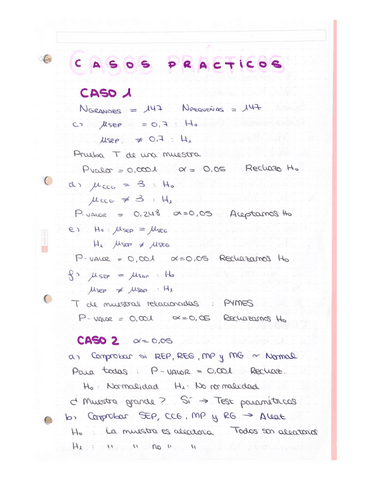 CASOS PRACTICOS
CASO 1
NGRANDES = 147 NPEQUEÑAS = 147
c) μSEP = 0,7 : H₀
μSEP ≠ 0,7 : H₁
Prueba T de una muestra
Pvalor = 0,0001 α = 0,05 Rechazo H₀
d) μCCG = 3 : H₀
μCCG ≠ 3 : H₁
P-VALOR = 0,248 α=0,05 Aceptamos H₀
e) H₀: μSEP = μSEG
H₁ μSEP ≠ μSEG
P-VALOR = 0,001 α=0.05 Rechazamos H₀
f) μSEP = : H₀
μSEP ≠ : H₁
T de muestras relacionadas : PYMES
P-VALOR = 0,001 α = 0,05 Rechazamos H₀
CASO 2 α=0,05
a) Comprobar si REP, REG, MP y MG ~ Normal
Para todas : P-VALOR = 0.001 Rechazo.
H₀: Normalidad H₁: No normalidad
¿Muestra grande? Sí → Test paramétricos
b) Comprobar SEP, CCG, MP y RG → Aleat
H₀ : La muestra es aleatoria Todos son aleatorios
H₁ : " " no " "